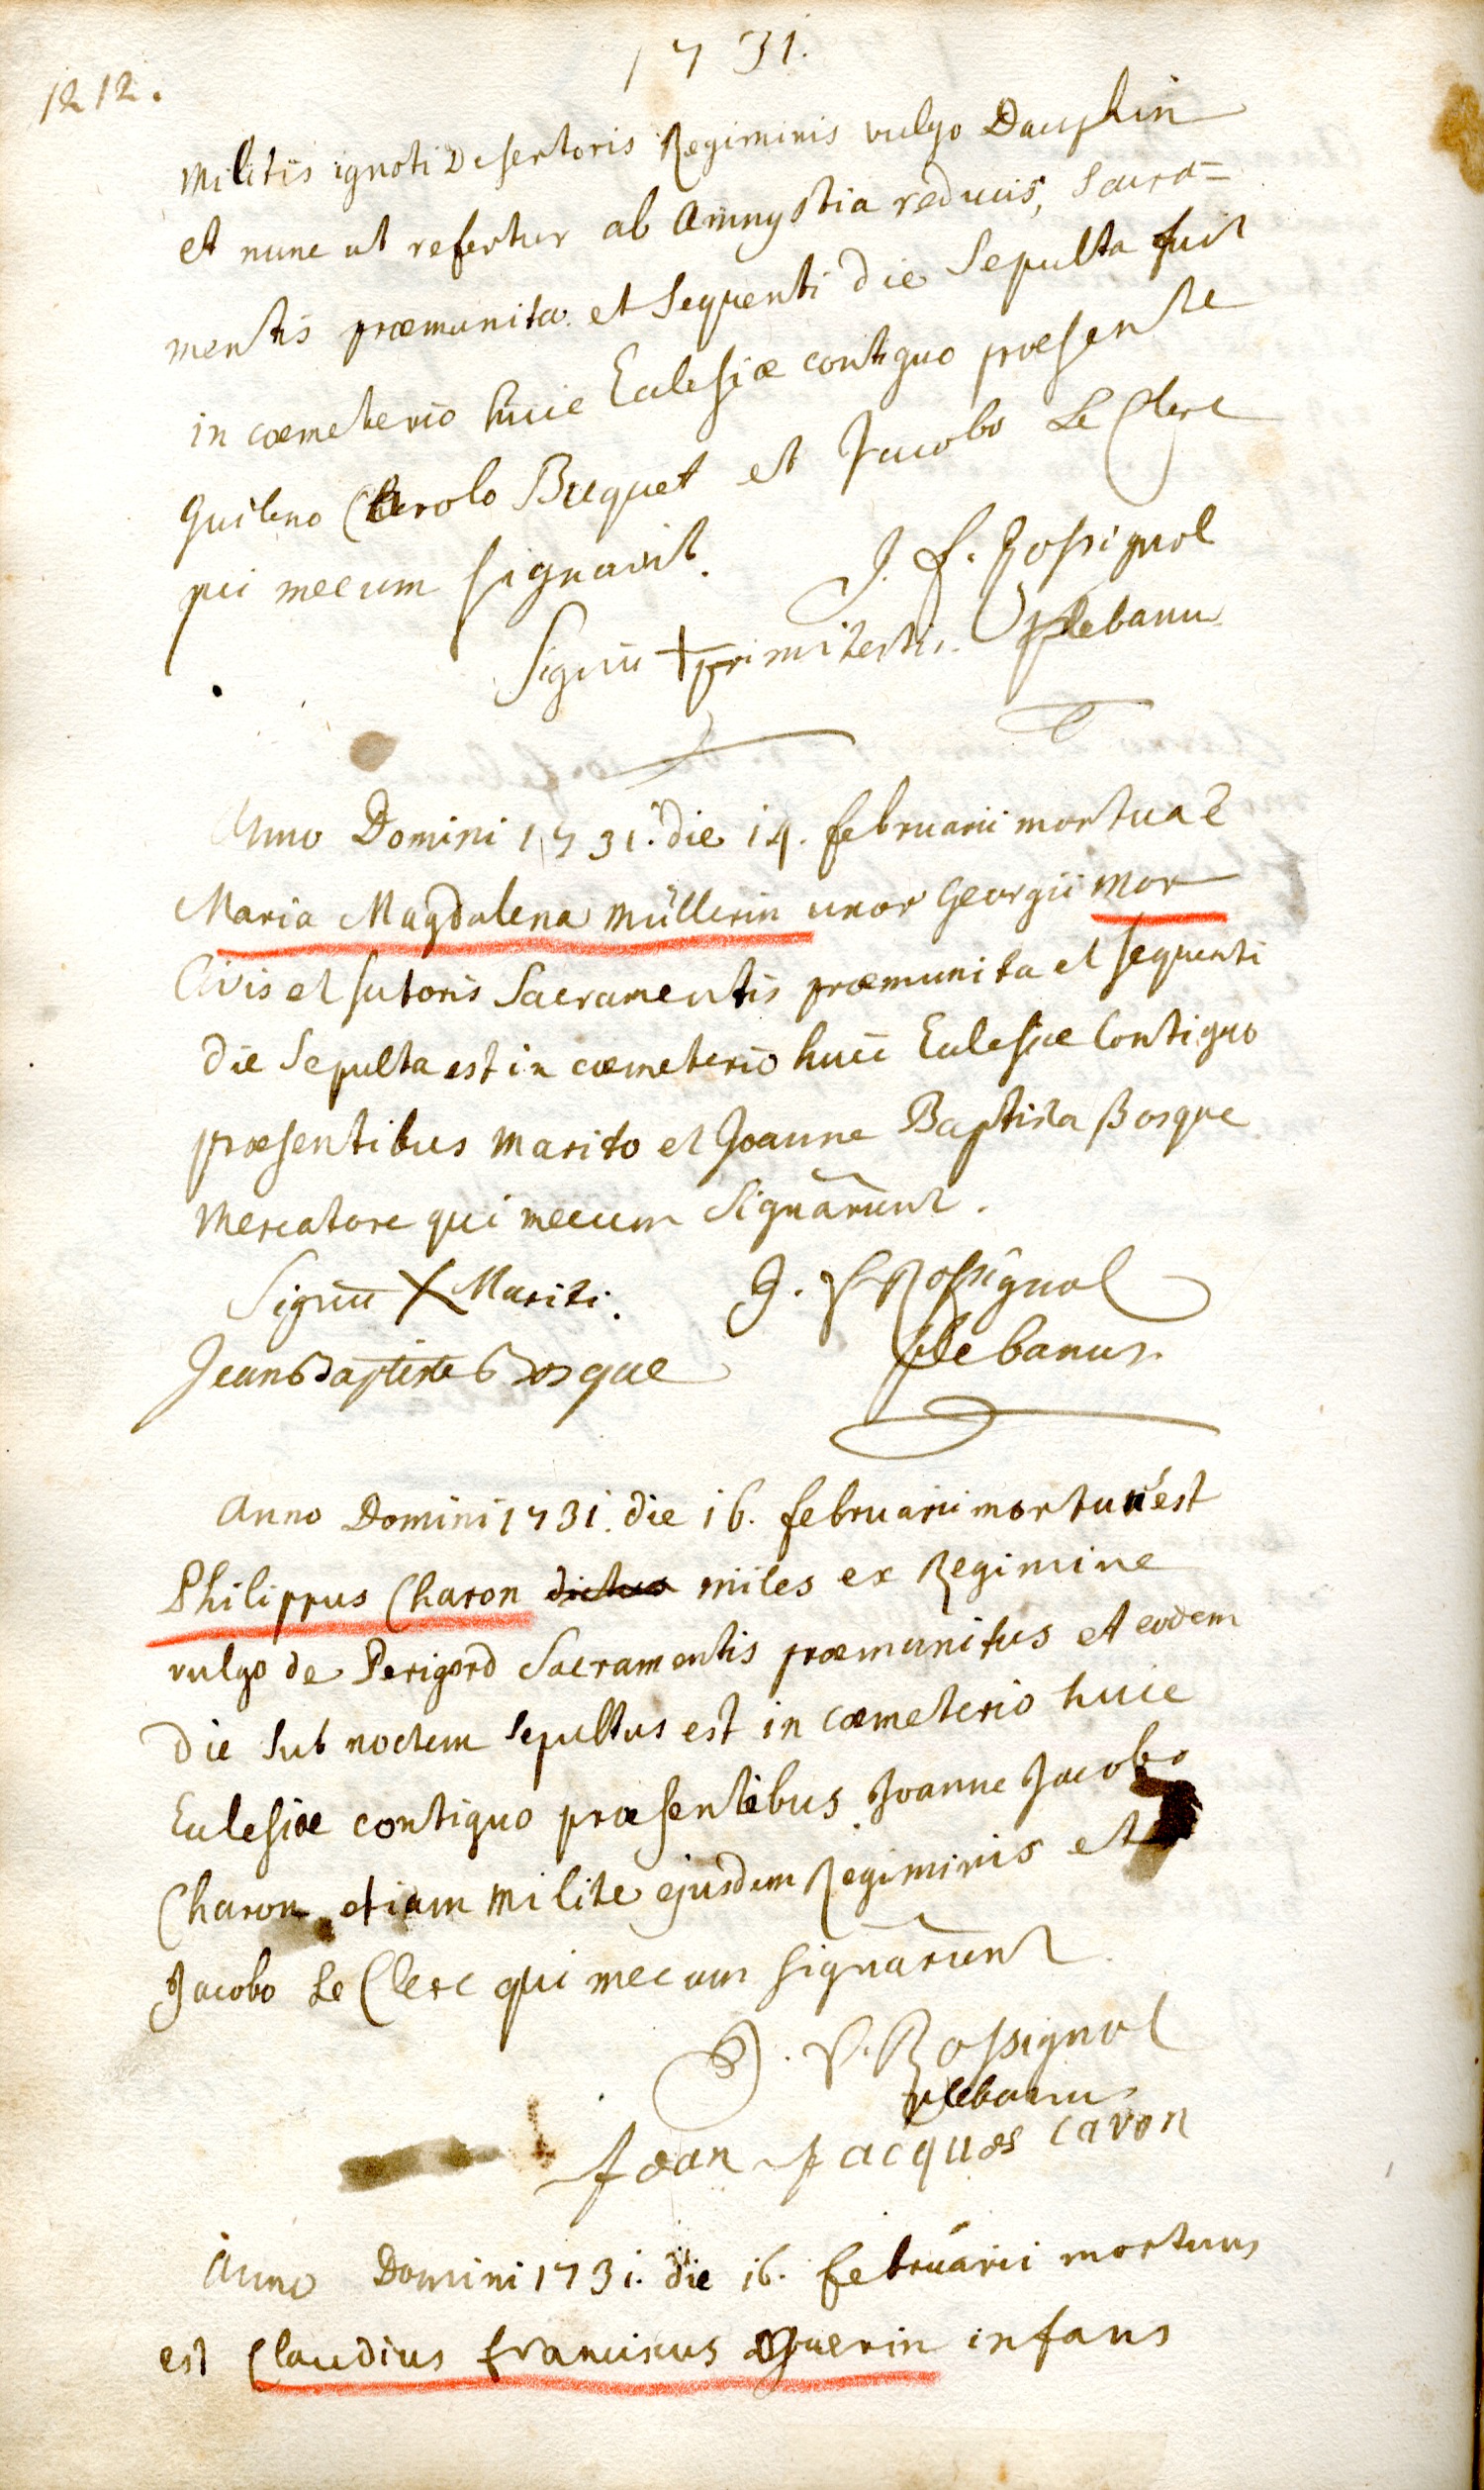 1731.
1212.
Militis ignoti Desertoris Regiminis vulgo Dauphin
et nunc ut refertur ab Amnystia reducis, Sacra=
mentis præmunita et sequenti die Sepulta fuit
in cœmeterio huic Ecclesiæ contiguo præsente
Guileno Carolo Buquet et Jacobo Le Clerc
qui mecum signavit.
J. f. Rossignol
Signũ + primi testis. Plebanus
Anno Domini 1731. die 14. februarii mortua ẽ
Maria Magdalena Müllerin uxor Georgii Mor
Civis et sutoris Sacramentis præmunita et sequenti
die Sepulta est in cœmeterio huic Ecclesiæ Contiguo
præsentibus Marito et Joanne Baptista Bosque
Mercatore qui mecum Signarunt.
Signũ X Mariti. J. f. Rossignol
Jean Baptiste Bosque Plebanus.
Anno Domini 1731. die 16. februarii mortuus est
Philippus Charon dictus miles ex Regimine
vulgo de Perigord Sacramentis præmunitus et eodem
Die Sub noctem Sepultus est in cœmeterio huic
Ecclesiæ contiguo præsentibus Joanne Jacobo
Charon etiam Milite ejusdem Regiminis et
Jacobo Le Clerc qui mecum signarunt
J. f. Rossignol
Plebanus
Jean Jacques Caron
Anno Domini 1731. die 16. februarii mortuus
est Claudius franciscus Guerin infans